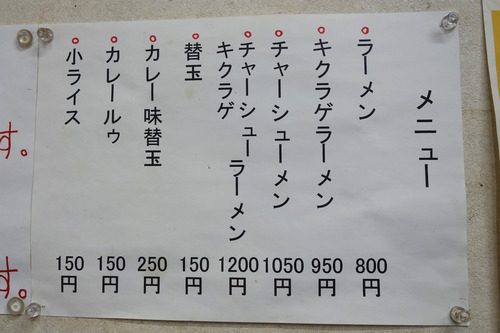 メニュー
ラーメン 800円
キクラゲラーメン 950円
チャーシューメン 1050円
チャーシューキクラゲラーメン 1200円
替玉 150円
カレー味替玉 250円
カレールゥ 150円
小ライス 150円
す。
す。